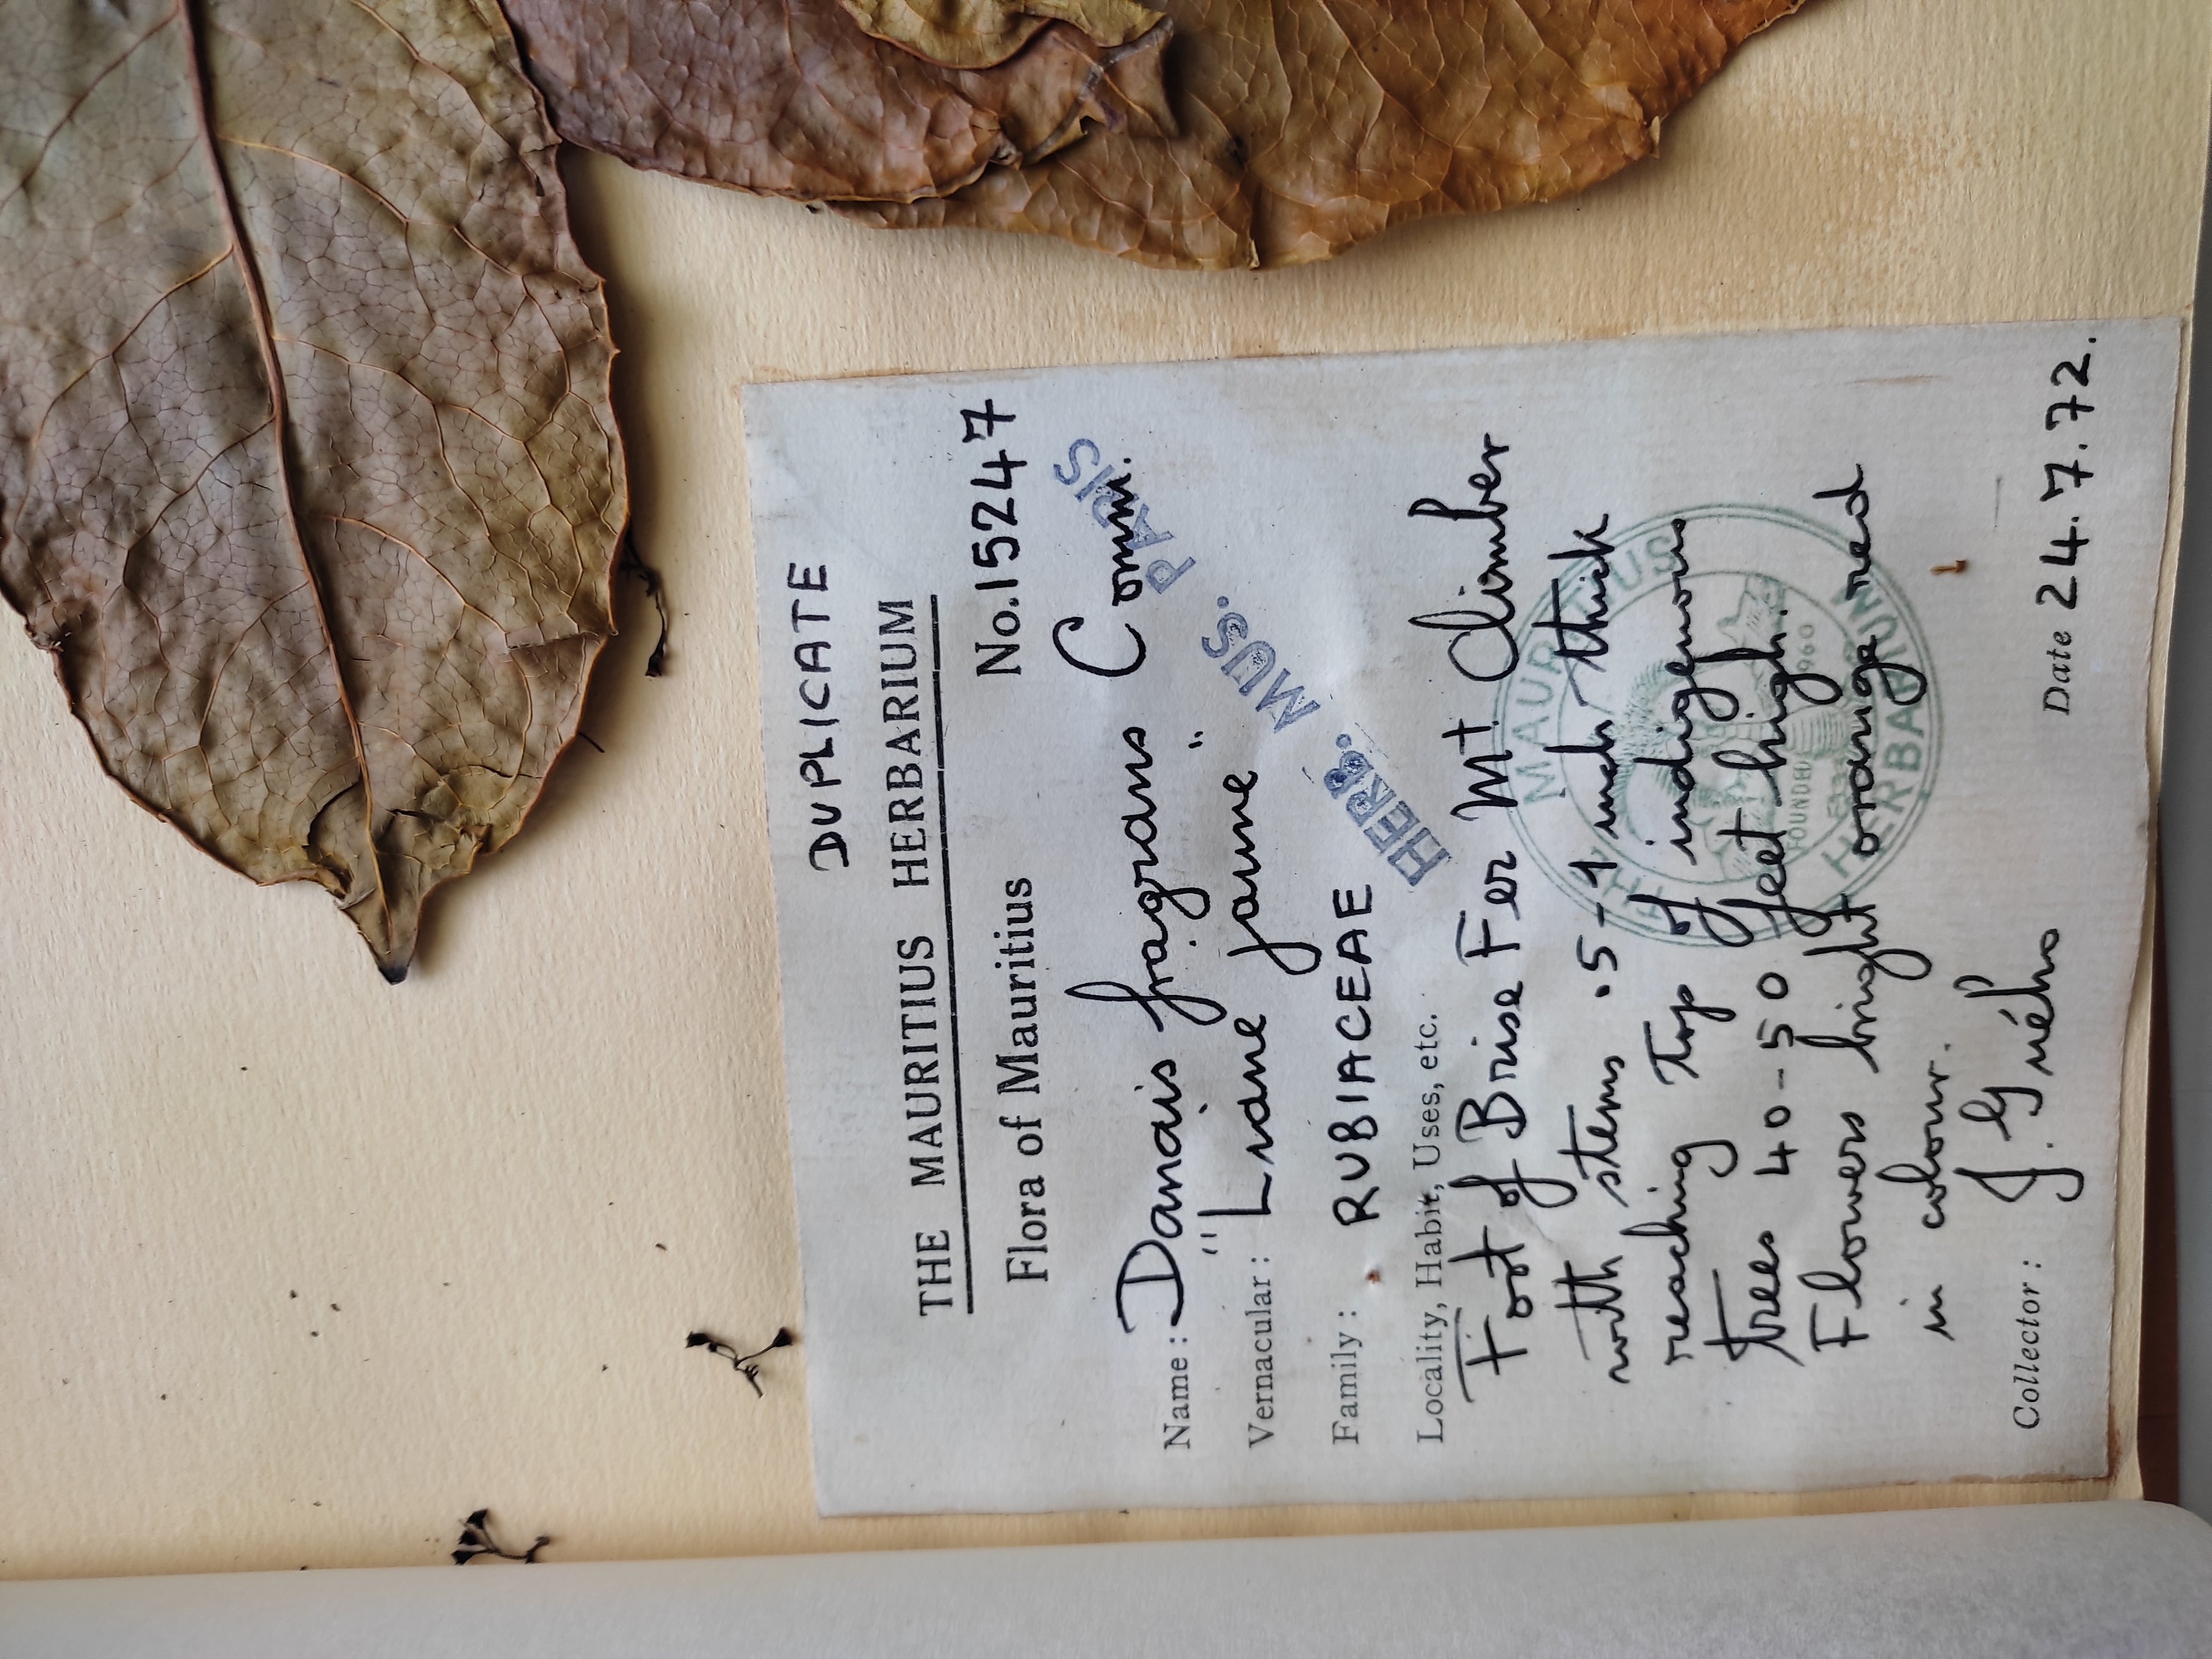 DUPLICATE
THE MAURITIUS HERBARIUM
Flora of Mauritius No. 15247
Name : Danais fragrans Comm.
Vernacular : "Liane jaune"
Family : RUBIACEAE
HERB. MUS. PARIS
Locality, Habit, Uses, etc.
Foot of Brise Fer Mt Climber
with stems .5-1 inch thick
reaching top of indigenous
trees 40-50 feet high.
Flowers bright orange red
in colour.
THE MAURITIUS
FOUNDED 1960
HERBARIUM
Collector : J. Guého Date 24.7.72.